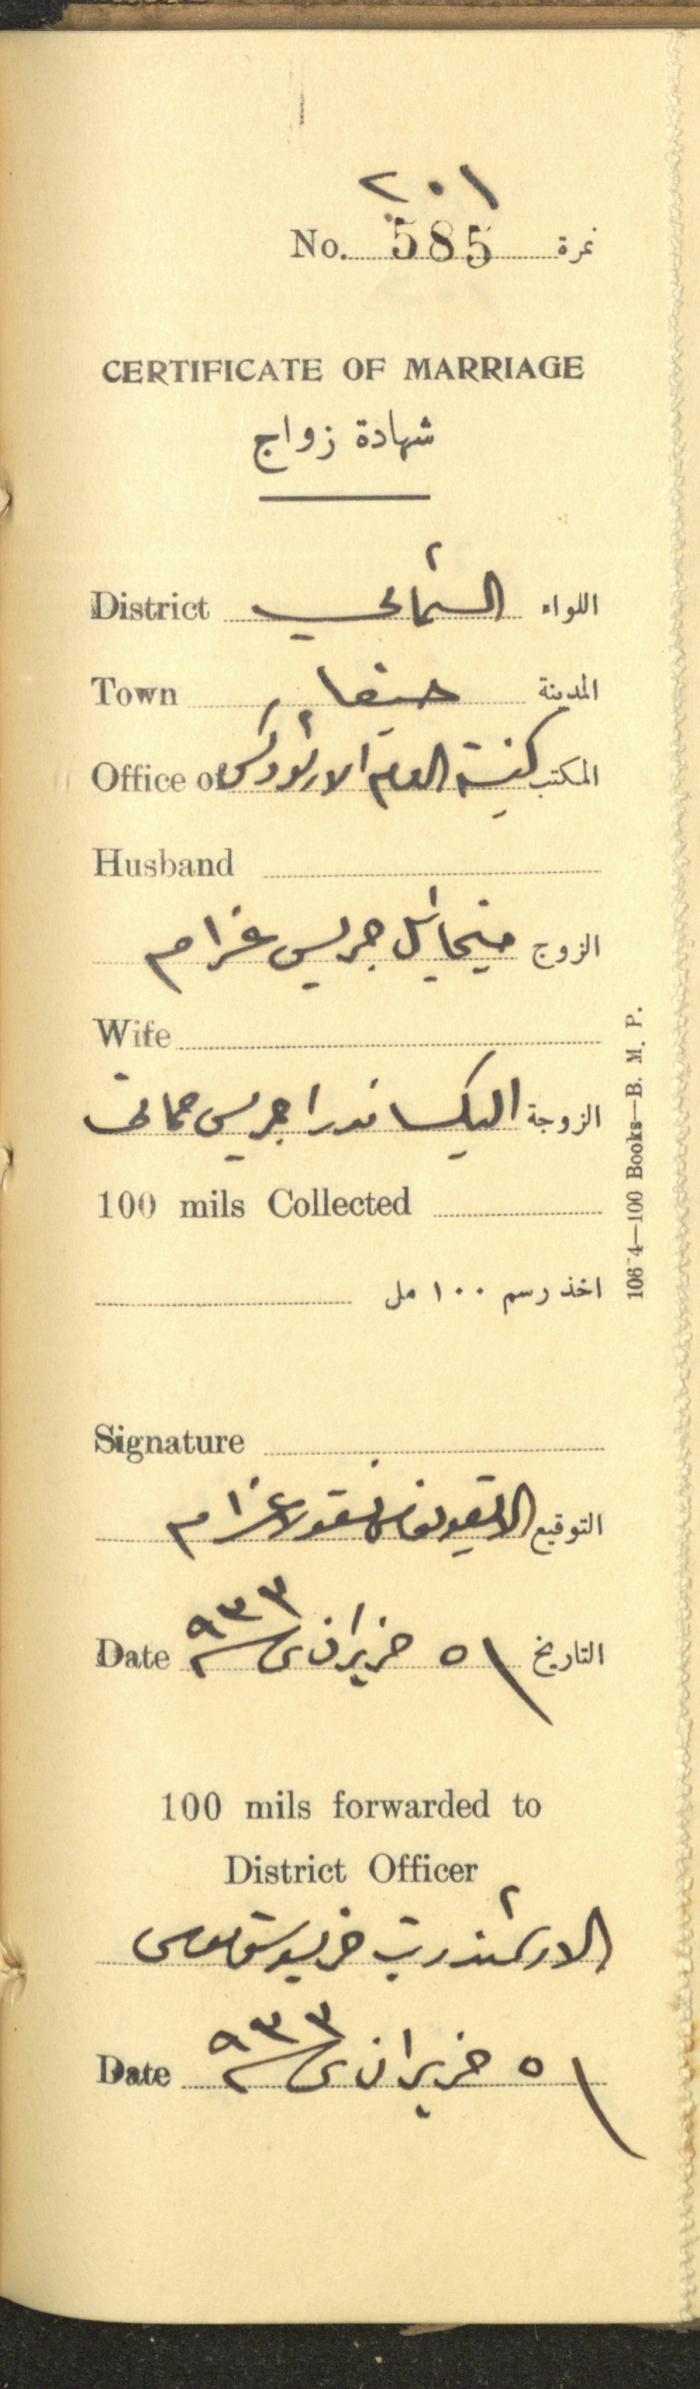 ٢٠١
No. 585 نمرة
CERTIFICATE OF MARRIAGE
شهادة زواج
District الشمالي اللواء
Town حيفا المدينة
Office of كنيسة الروم الارثوذكس المكتب
Husband
الزوج ميخائيل جريس عزام
Wife
الزوجة اليكساندرا جريس
100 mils Collected
اخذ رسم ١٠٠ مل
Signature
التوقيع الايقونوموس نقولا عزام
Date ١٥ حزيران سنة ٩٣٣ التاريخ
100 mils forwarded to
District Officer
الارشمندريت خريسوستموس
Date ١٥ حزيران سنة ٩٣٣
100 Books—B. M. P.